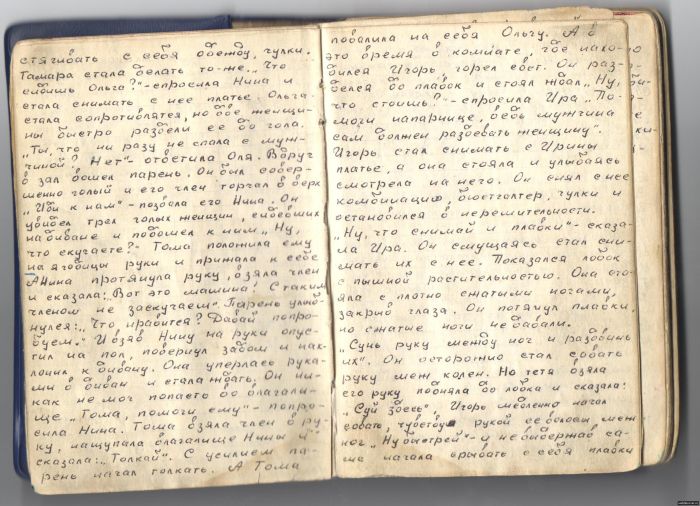 стягивать с себя одежду, чулки.
Тамара стала делать то-же. „Что
сидишь Ольга?" - спросила Нина и
стала снимать с нее платье. Ольга
стала сопротивлятся, но обе женщи-
ны быстро раздели ее до гола.
„Ты, что ни разу не спала с муж-
чиной? Нет" - ответила Оля. Вдруг
в зал вошел парень. Он был совер-
шенно голый и его член торчал в верх
„Иди к нам" - позвала его Нина. Он
увидел трех голых женщин, сидевших
на диване и подошел к ним „Ну,
что скучаете?" Тома положила ему
на ягодицы руки и прижала к себе
А Нина протянула руку, взяла член
и сказала: „Вот это машина! С таким
членом не заскучаем". Парень улыб-
нулся: „Что нравится? Давай попро-
буем." И взяв Нину на руки опус-
тил на пол, повернул задом и нак-
лонил к дивану. Она уперлась рука-
ми в диван и стала ждать. Он ни-
как не мог попасть во влагали-
ще „Тома, помоги ему" - попро-
сила Нина. Тома взяла член в ру-
ку, нащупала влагалище Нины и
сказала: „Толкай". С усилием па-
рень начал толкать. А Тома
повалила на себя Ольгу. А в
это время в комнате, где нахо-
дился Игорь горел свет. Он раз-
делся до плавок и стоял ждал „Ну,
что стоишь?" - спросила Ира „По-
моги напарнице, ведь мужчина
сам должен раздевать женщину".
Игорь стал снимать с Ирины
платье, а она стояла и улыбаясь
смотрела на него. Он снял с нее
комбинацию, бюстгалтер, чулки и
остановился в нерешительности.
„Ну, что снимай и плавки" - сказа-
ла Ира. Он смущаясь стал сни-
мать их с нее. Показался лобок
с пышной растительностью. Она сто-
яла с плотно сжатыми ногами,
закрыв глаза. Он потянул плавки,
но сжатые ноги не давали.
„Сунь руку между ног и раздвинь
их". Он осторожно стал совать
руку меж колен. Но тетя взяла
его руку подняла до лобка и сказала:
„Суй здесь". Игорь медленно начал
совать, чувствуя рукой ее волосы меж
ног „Ну быстрей" - и не выдержав са-
ма начала срывать с себя плавки